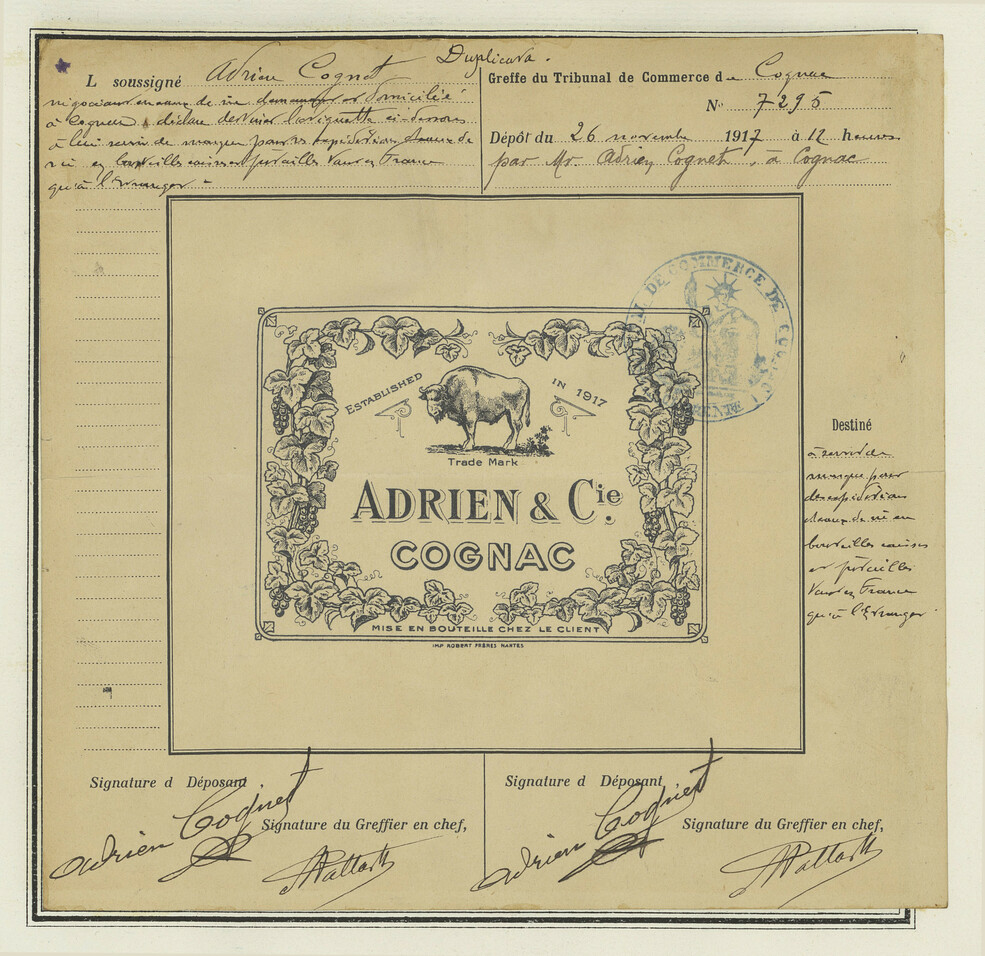 Duplicata.
L soussigné Adrien Cognet
négociant en eaux de vie demeurant et domicilié
à Cognac, déclare déposer la vignette ci-dessous
à lui servir de marque pour les expéditions d'eaux de
vie en bouteilles caisses et futailles tant en France
qu'à l'Etranger -
Greffe du Tribunal de Commerce de Cognac
N° 7295
Dépôt du 26 novembre 1917 à 12 heures
par Mr. Adrien Cognet, à Cognac
DE COMMERCE DE
ESTABLISHED IN 1917
Trade Mark
ADRIEN & Cie.
COGNAC
MISE EN BOUTEILLE CHEZ LE CLIENT
IMP ROBERT FRÈRES NANTES
Destiné
à servir de
marque pour
des expéditions
d'eaux de vie en
bouteilles caisses
et futailles
tant en France
qu'à l'Etranger
Signature d Déposant
Adrien Cognet
Signature du Greffier en chef,
Signature d Déposant
Adrien Cognet
Signature du Greffier en chef,